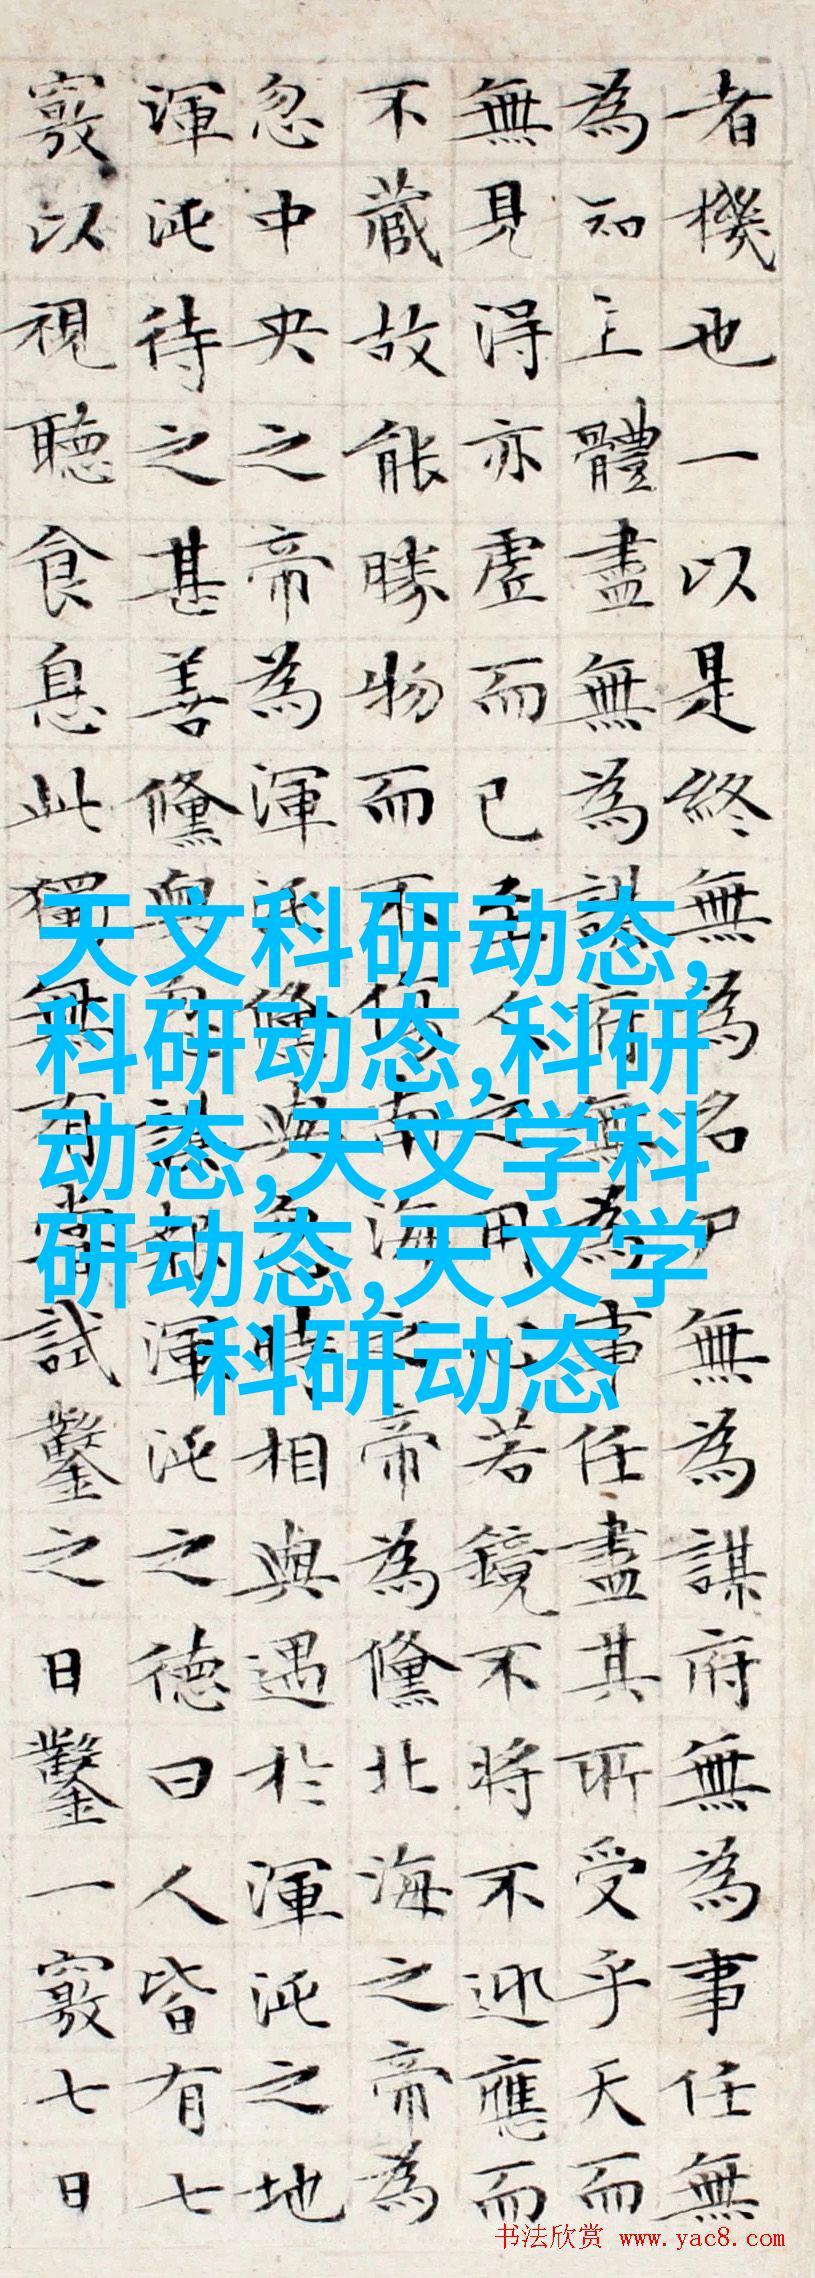 者機也一以是終無為名尸無為謀府無為事任無
為知主體盡無為謀府無為事任盡其所受乎天而
無見得亦虛而已至人之用心若鏡不將不迎應而
不藏故能勝物而不傷南海之帝為儵北海之帝為
忽中央之帝為渾沌儵與忽時相與遇於渾沌之地
渾沌待之甚善儵與忽謀報渾沌之德曰人皆有七
竅以視聽食息此獨無有嘗試鑿之日鑿一竅七日
天文科研动态,
科研动态,科研
动态,天文学科
研动态,天文学
科研动态
书法欣赏 www.yac8.com